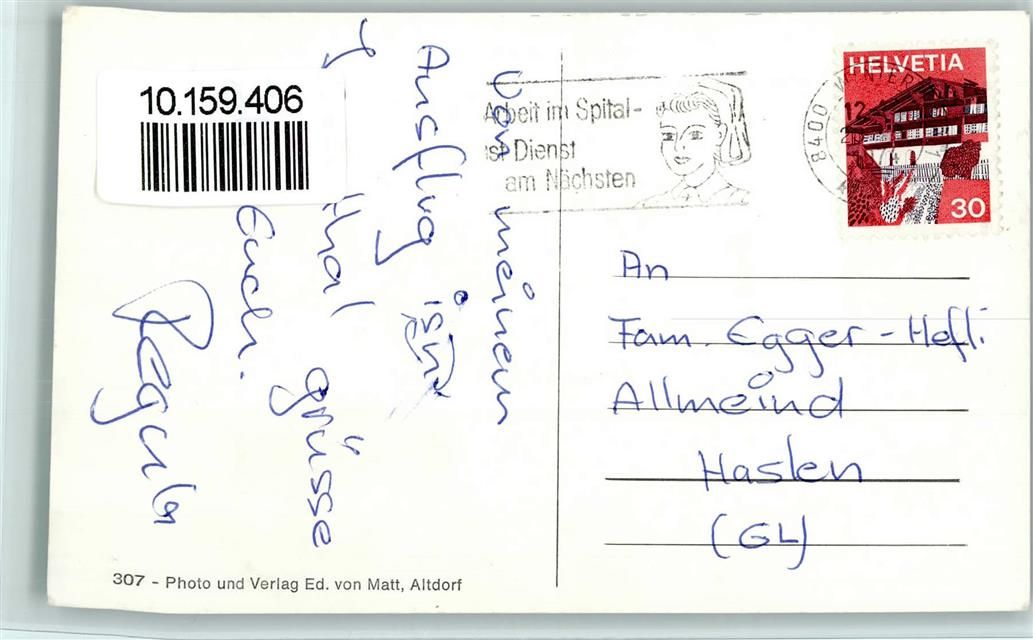 10.159.406
Von meinem
Ausflug ins
thal grüsse
Euch.
Regula
Arbeit im Spital-
ist Dienst
am Nächsten
8400
HELVETIA
30
An
Fam. Egger-Hefli
Allmeind
Haslen
(GL)
307 - Photo und Verlag Ed. von Matt, Altdorf